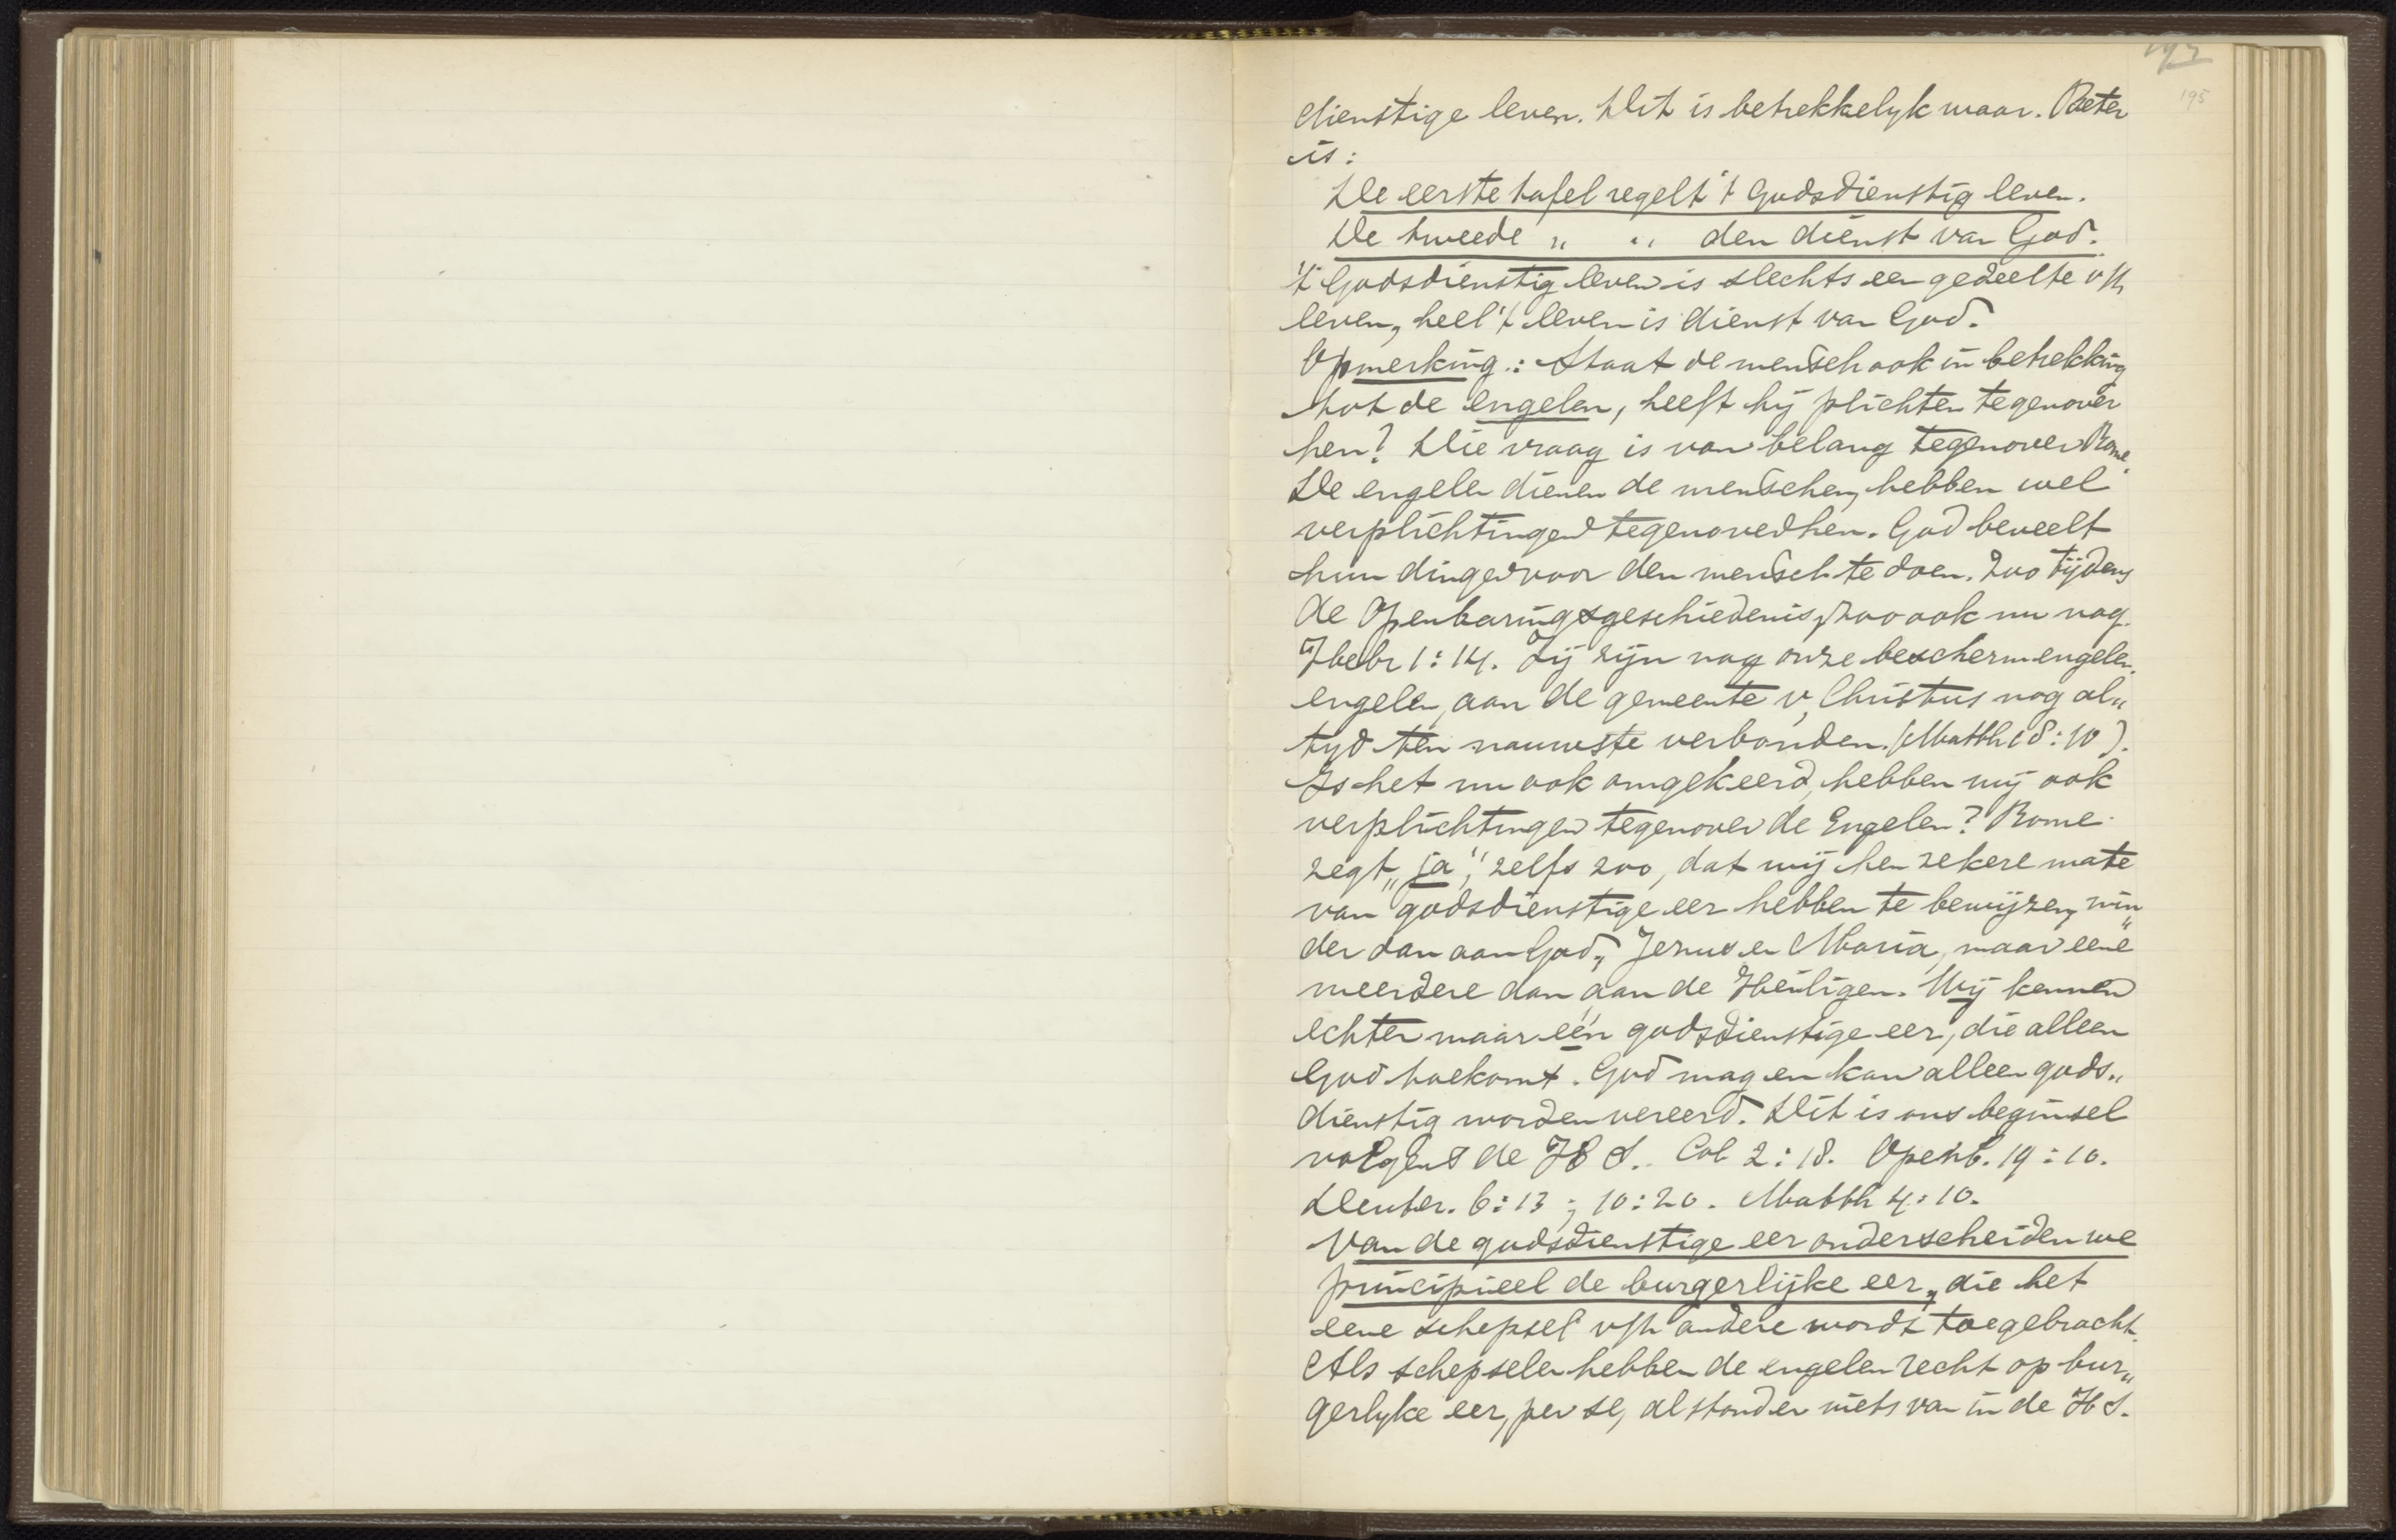 195
dienstige leven. Dit is betrekkelyk waar. Beter
is:
De eerste tafel regelt 't Godsdienstig leven.
De tweede " " den dienst van God.
't Godsdienstig leven is slechts een gedeelte v/h
leven, heel 't leven is dienst van God.
Opmerking: Staat de mensch ook in betrekking
tot de engelen, heeft hij plichten tegenover
hen? Die vraag is van belang tegenover Rome.
De engelen dienen de menschen, hebben wel
verplichtingen tegenover hen. God beveelt
hun dingen voor den mensch te doen. Zoo tijdens
de Openbaringsgeschiedenis, zoo ook nu nog.
Hebr 1:14. Zij zijn nog onze beschermengelen.
engelen, aan de gemeente v. Christus nog al„
tyd ten nauwste verbonden. (Matth 18:10).
Is het nu ook omgekeerd, hebben wij ook
verplichtingen tegenover de Engelen? Rome
zegt „ja", zelfs zoo, dat wij hen zekere mate
van godsdienstige eer hebben te bewijzen, min„
der dan aan God, Jezus en Maria, maar eene
meerdere dan aan de Heiligen. Wij kennen
echter maar één godsdienstige eer, die alleen
God toekomt. God mag en kan alleen gods„
dienstig worden vereerd. Dit is ons beginsel
volgens de H S. Col 2:18. Openb. 19:10.
Deuter. 6:13; 10:20. Matth 4:10.
Van de godsdienstige eer onderscheiden we
principieel de burgerlijke eer, die het
eene schepsel v/h andere wordt toegebracht.
Als schepselen hebben de engelen recht op bur„
gerlyke eer, per se, al stond er niets van in de H S.